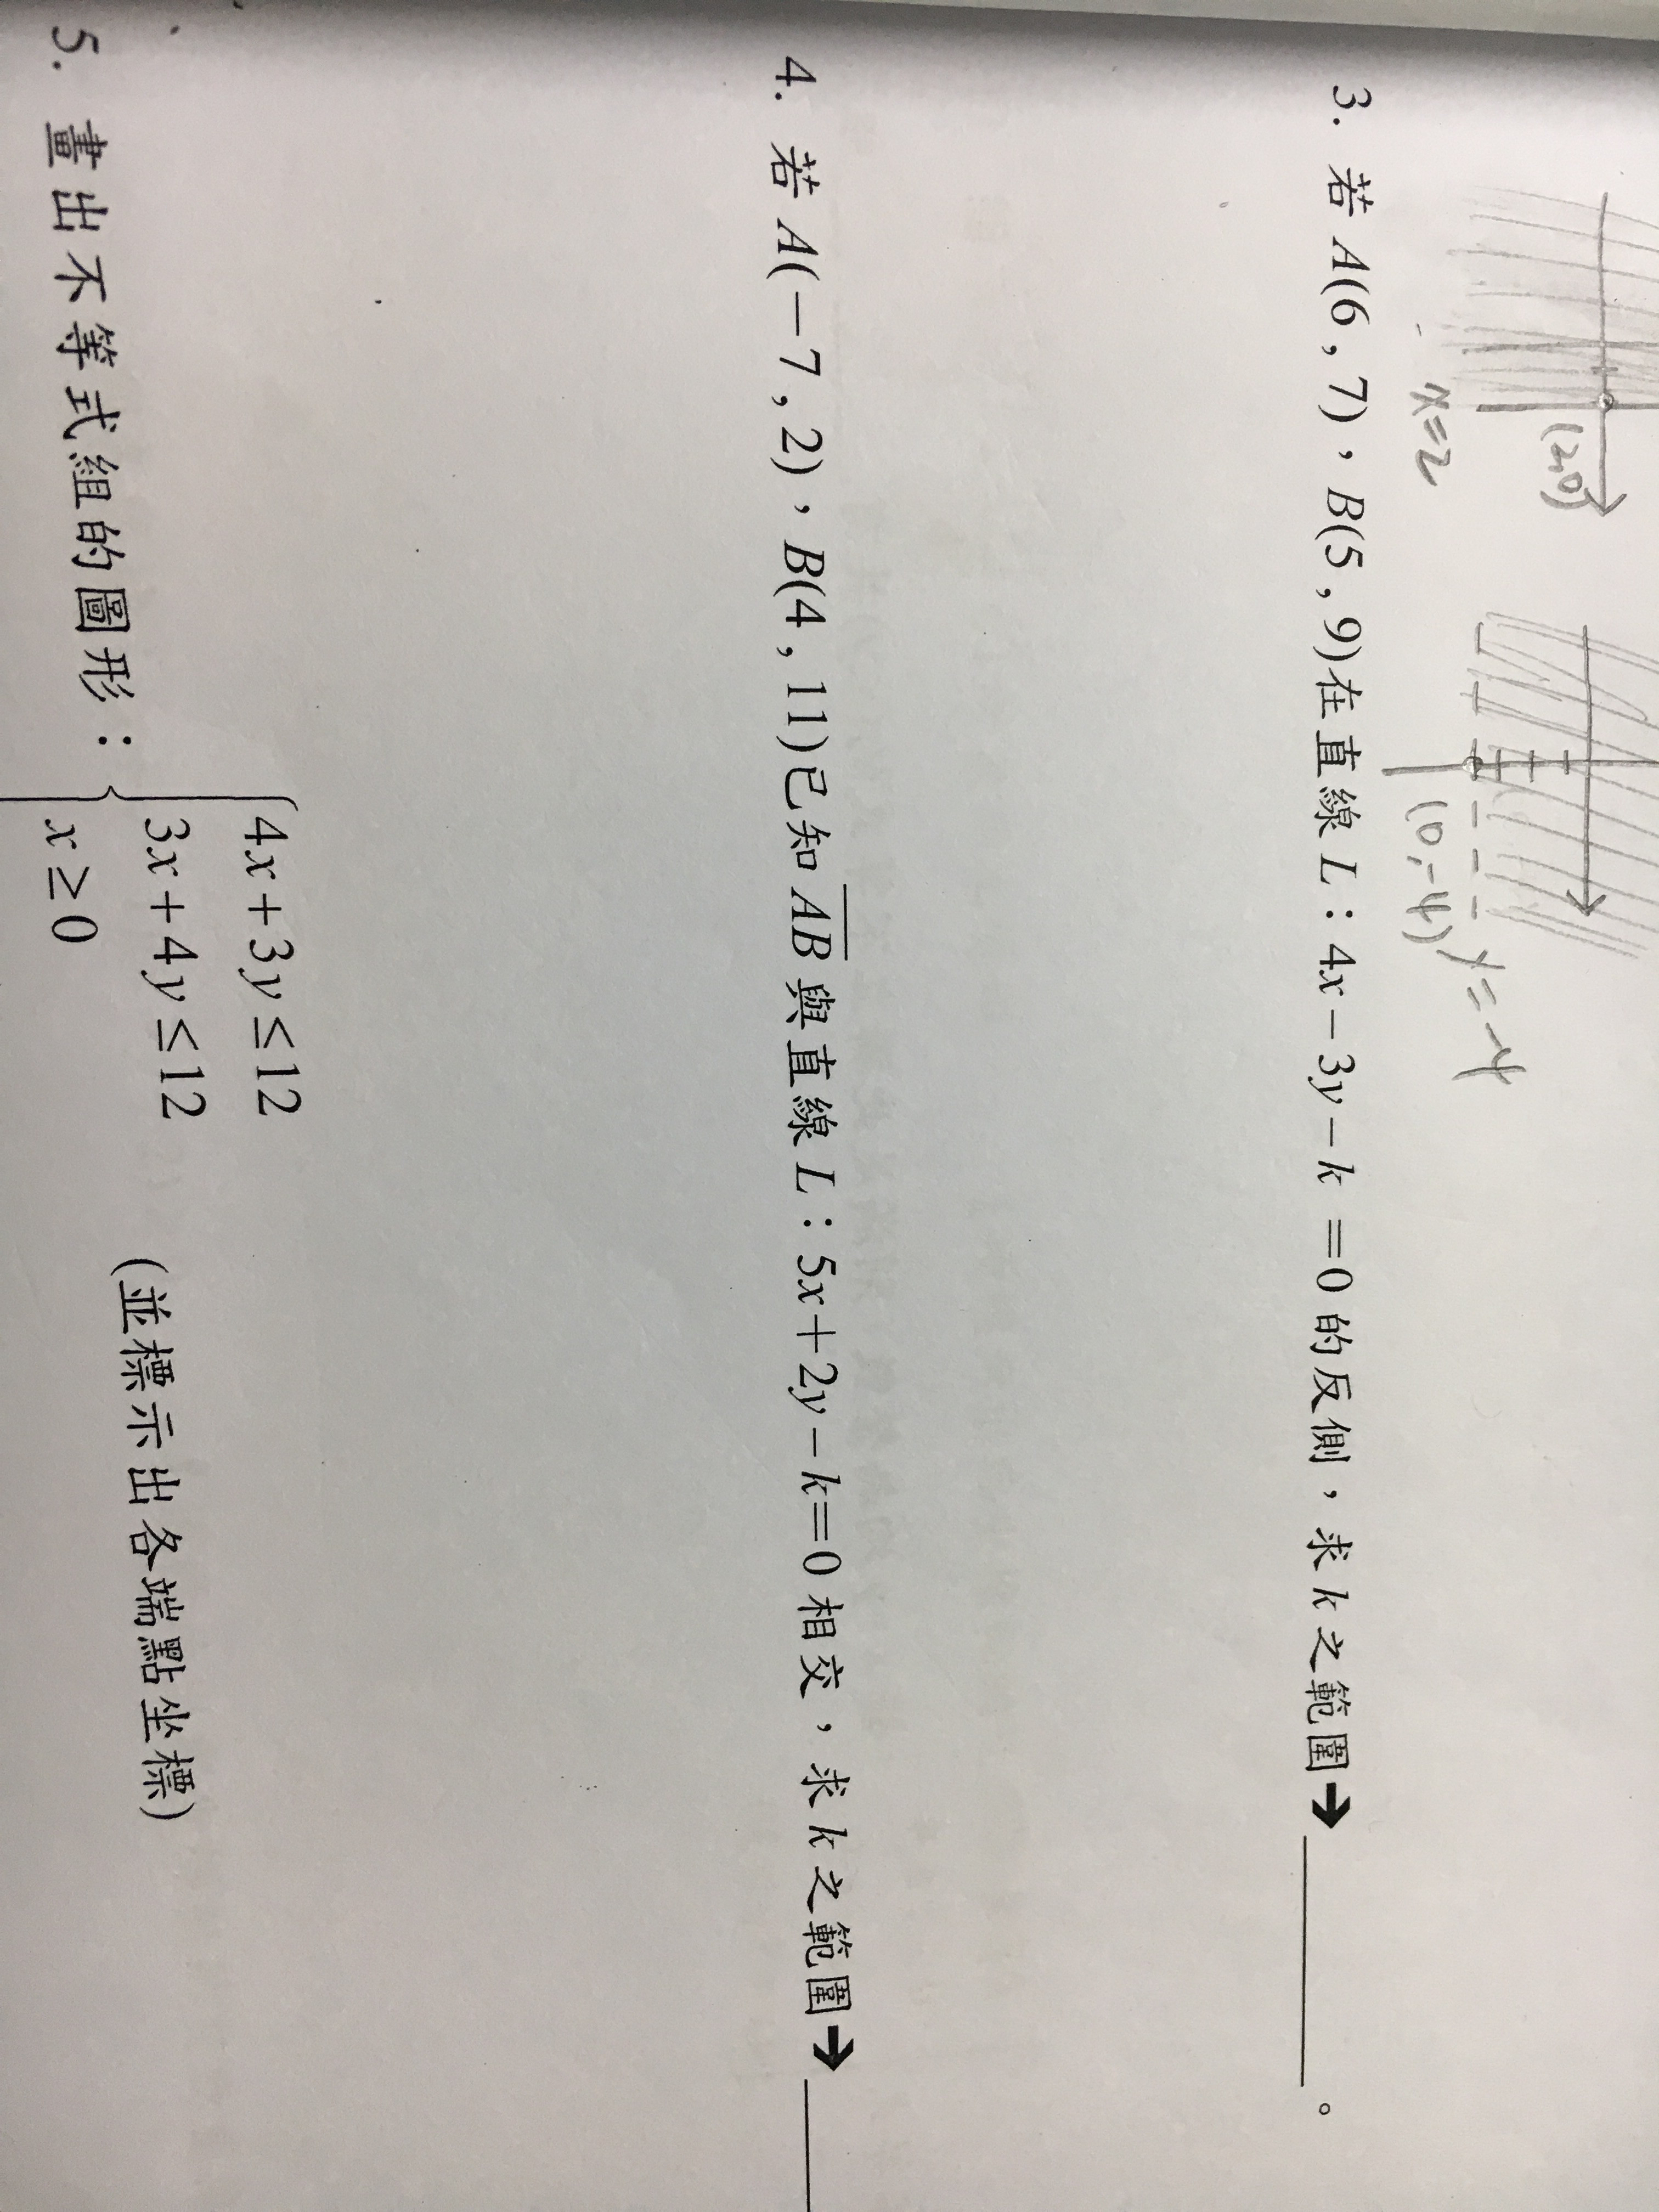 (2,0)
x=2
(0,-4)
y=-4
3. 若 A(6 , 7)，B(5 , 9)在直線 L：4x－3y－k ＝0 的反側，求 k 之範圍➔________。
4. 若 A(－7 , 2)，B(4 , 11)已知 A̅B̅ 與直線 L：5x＋2y－k＝0 相交，求 k 之範圍➔____
5. 畫出不等式組的圖形：
4x＋3y ≤12
3x＋4y ≤12
x ≥0
(並標示出各端點坐標)